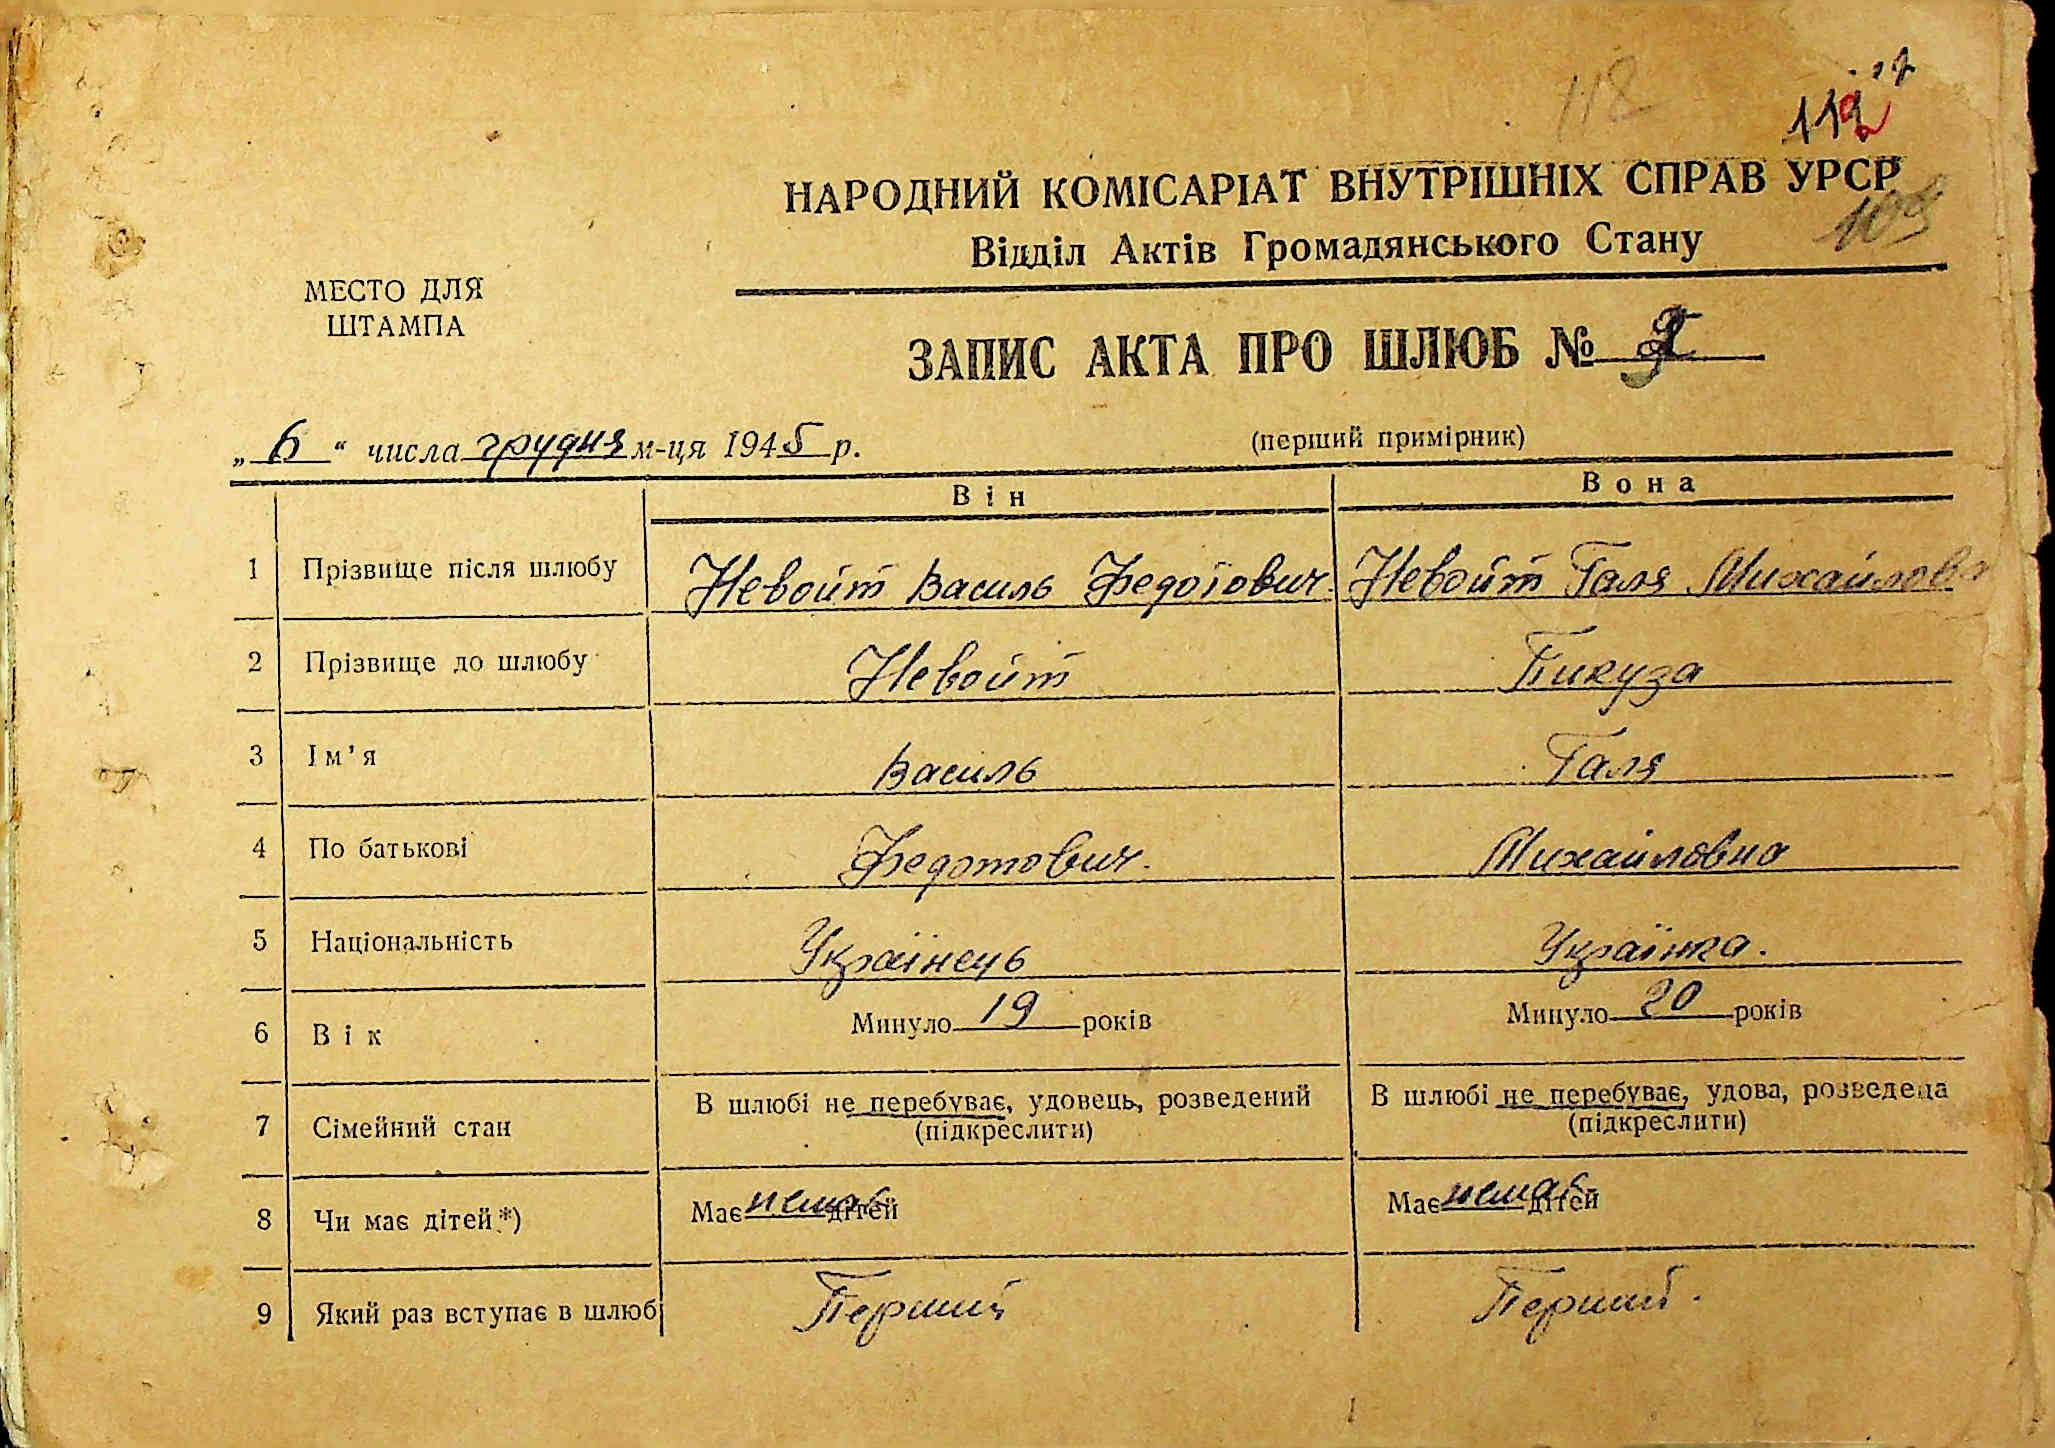 118
112
НАРОДНИЙ КОМІСАРІАТ ВНУТРІШНІХ СПРАВ УРСР
109
Відділ Актів Громадянського Стану
МЕСТО ДЛЯ
ШТАМПА
ЗАПИС АКТА ПРО ШЛЮБ №
„6“ числа грудня м-ця 1945 р.
(перший примірник)
Він Вона
1 Прізвище після шлюбу Невойт Василь Федотович Невойт Галя Михайлова
2 Прізвище до шлюбу Невойт Пикуза
3 Ім'я Василь Галя
4 По батькові Федотович. Михайловна
5 Національність Українець Українка.
6 Вік Минуло 19 років Минуло 20 років
7 Сімейний стан В шлюбі не перебуває, удовець, розведений В шлюбі не перебуває, удова, розведена
(підкреслити) (підкреслити)
8 Чи має дітей*) Має немає дітей Має немає дітей
9 Який раз вступає в шлюб Перший Перший.